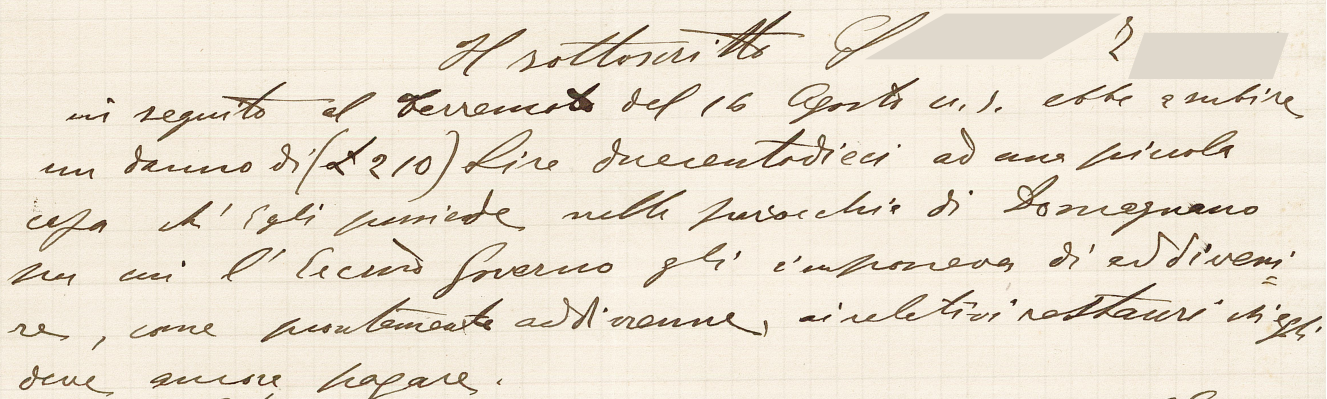 Il sottoscritto
in seguito al terremoto del 16 Agosto u.s. ebbe a subire
un danno di (£ 210) Lire duecentodieci ad una piccola
casa ch' Egli possiede nella parocchia di Domagnano
per cui l' Eccmo Governo gli imponeva di addiveni
re, come prontamente addivenne, ai reletivi restauri ch' egli
deve ancora pagare.